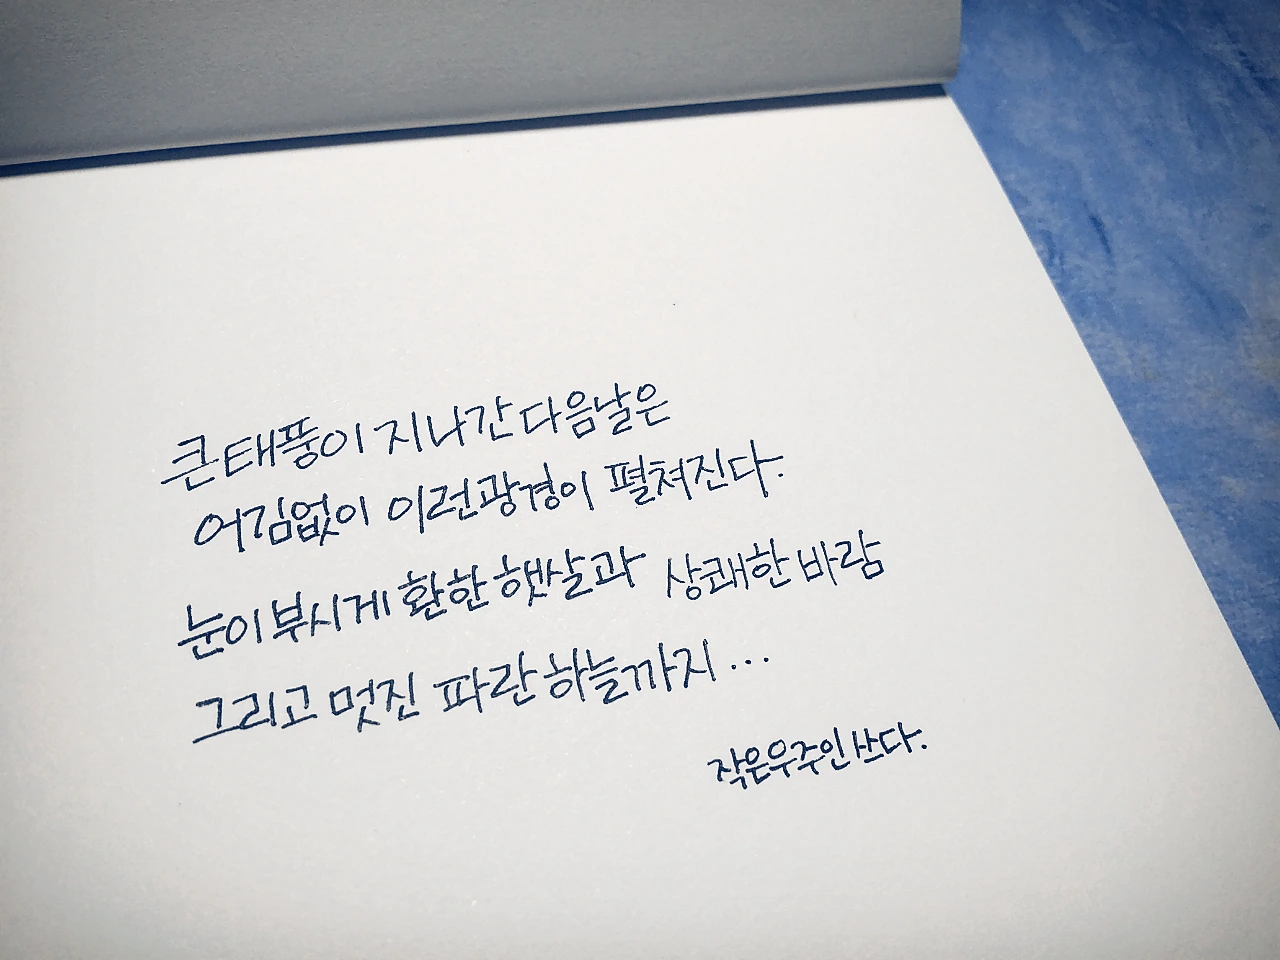 큰 태풍이 지나간 다음날은
어김없이 이런 광경이 펼쳐진다.
눈이 부시게 환한 햇살과 상쾌한 바람
그리고 멋진 파란 하늘까지...
작은우주인 쓰다.